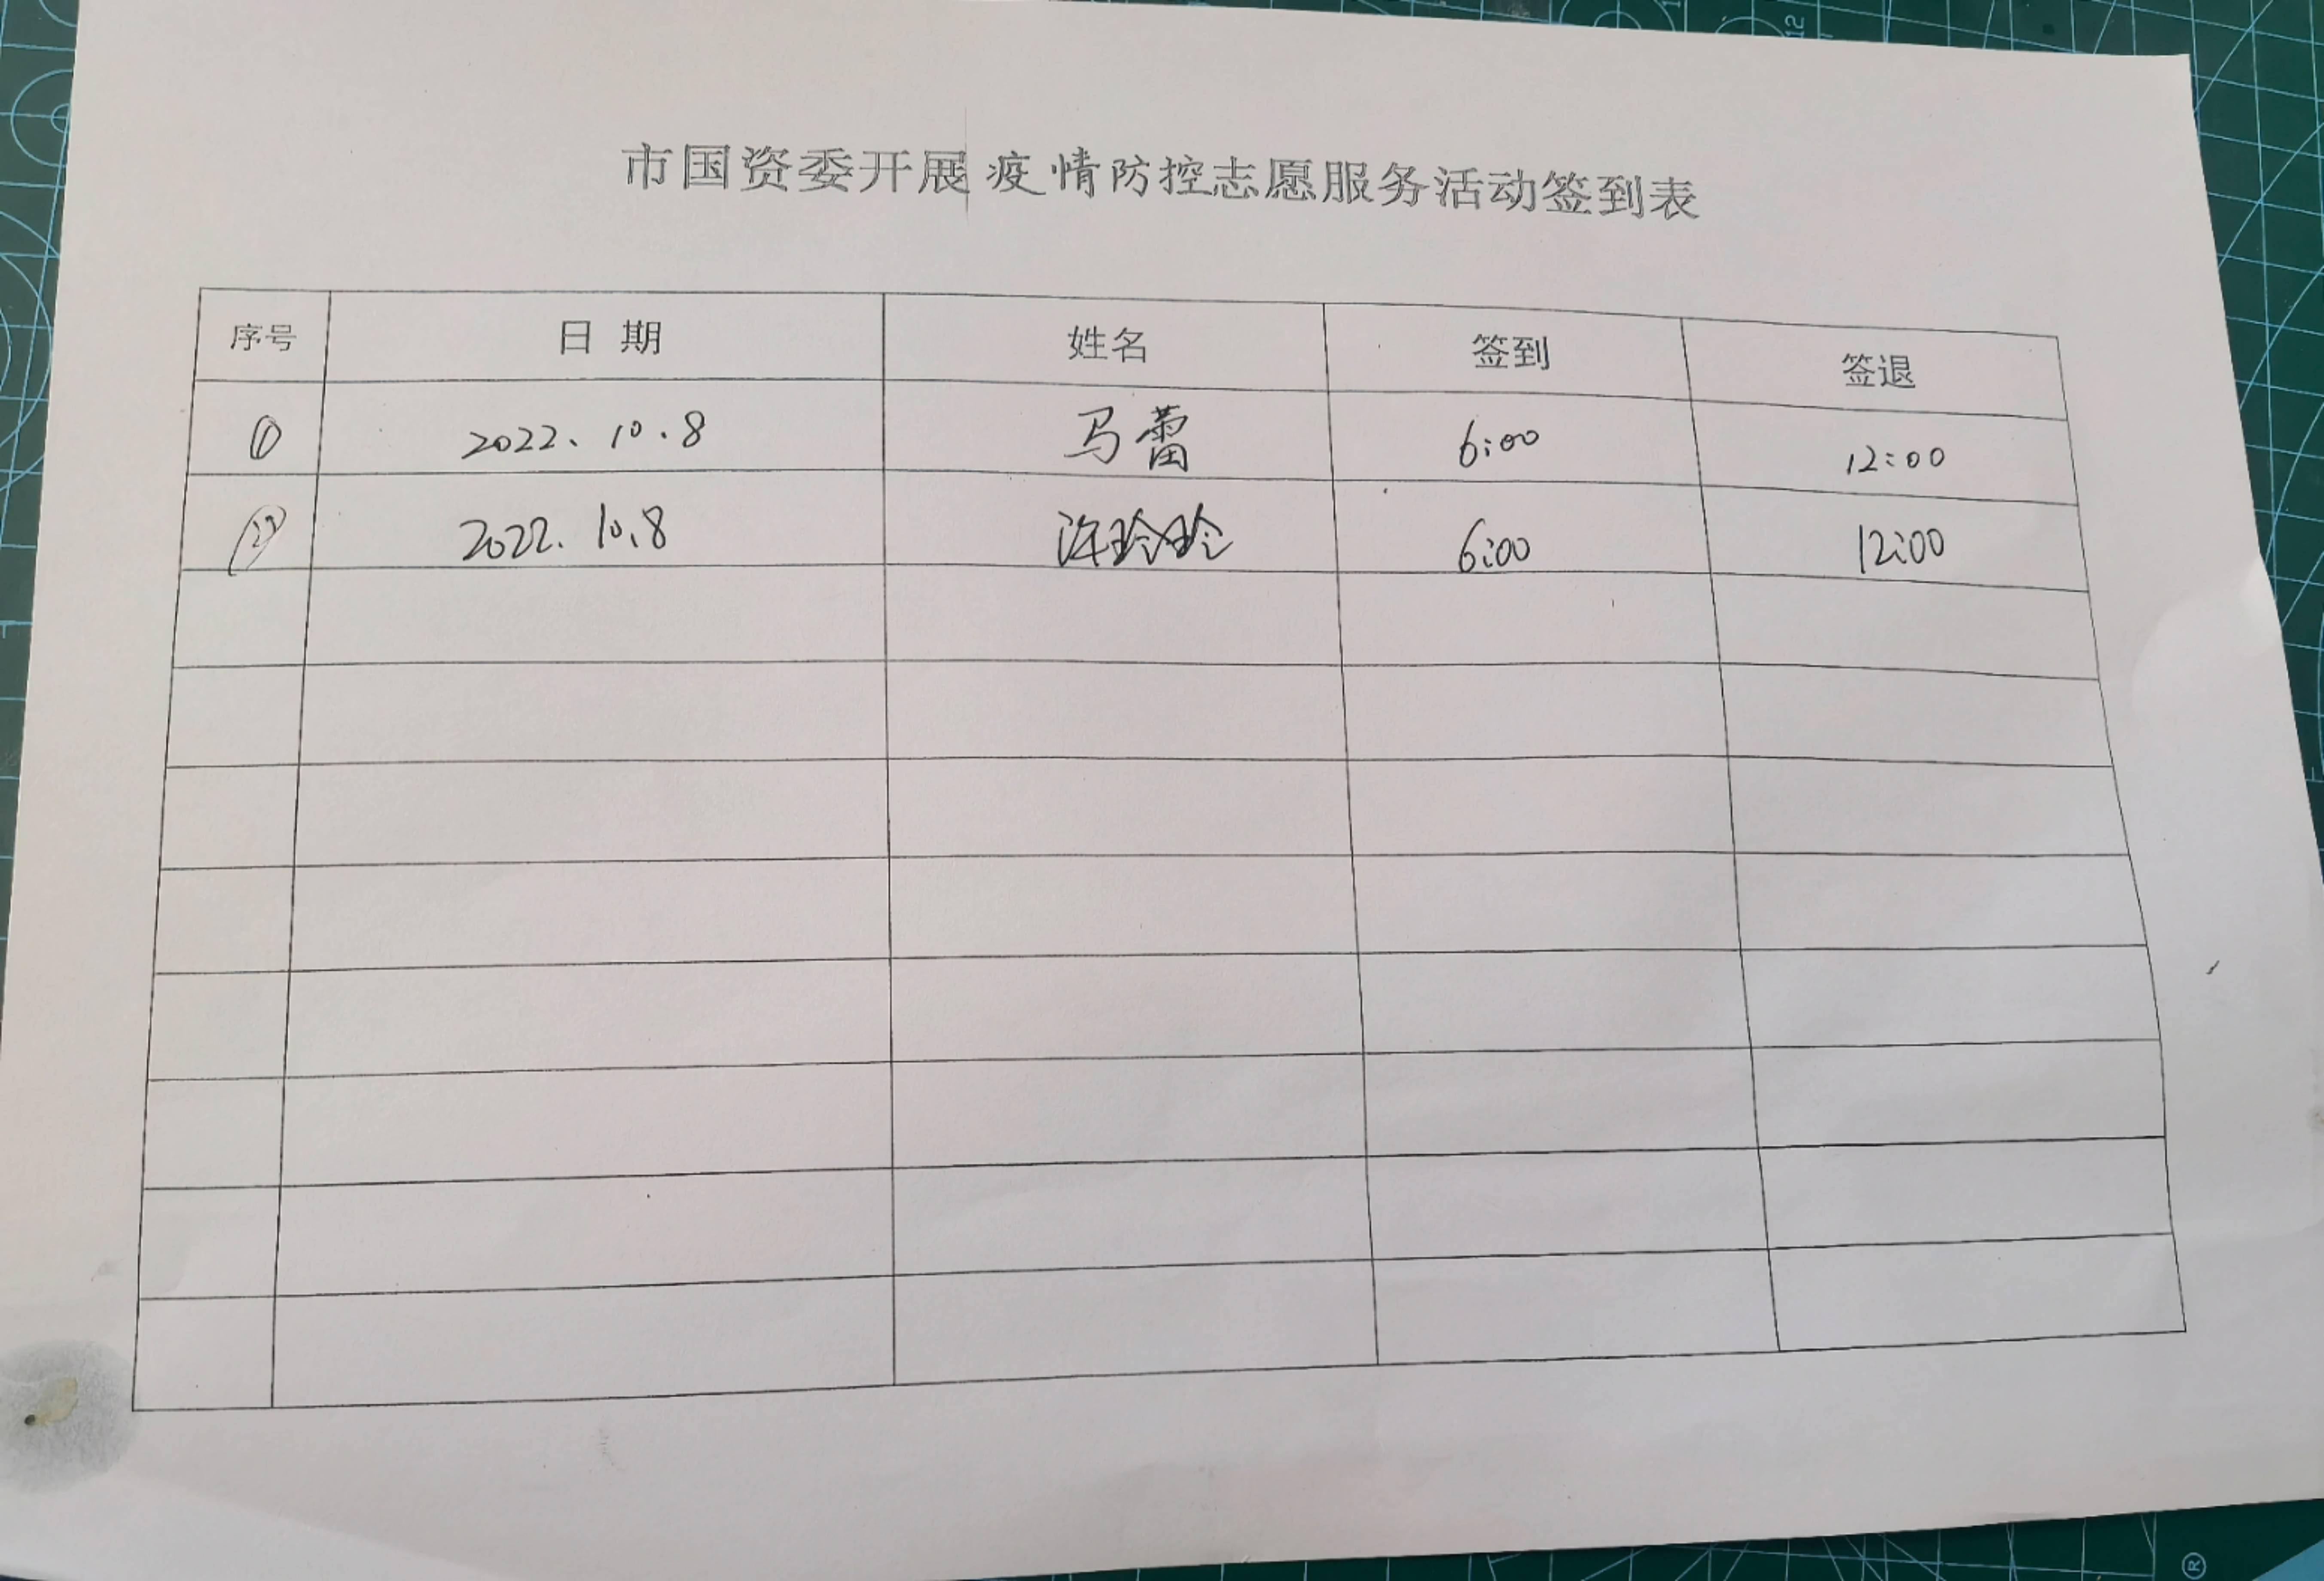 市国资委开展疫情防控志愿服务活动签到表
序号 日期 姓名 签到 签退
① 2022、10.8 马蕾 6:00 12:00
② 2022.10.8 许玲玲 6:00 12:00
12
®